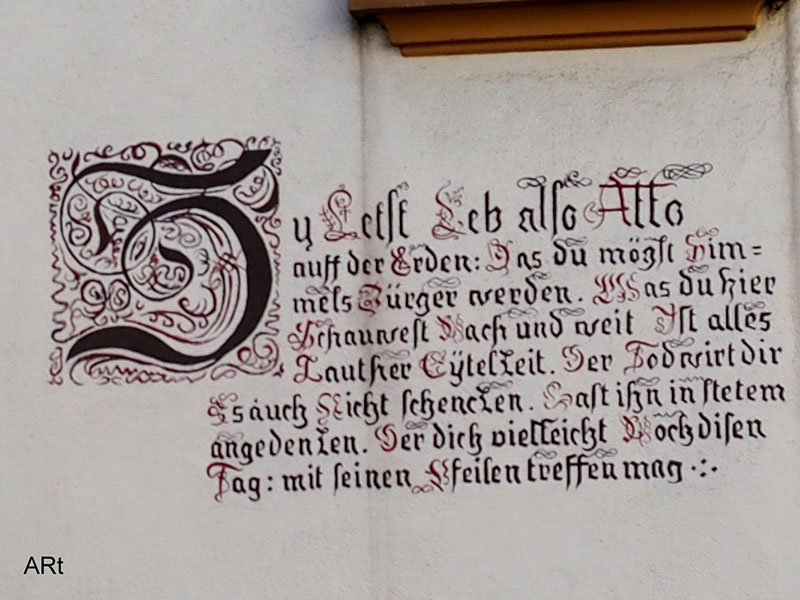 Leb also
auff der Erden: Das du mögst Him=
mels Bürger werden. Was du hier
Schauwest Nach und weit Ist alles
Lauther Eÿtelkeit. Der Tod wirt dir
Es auch Nicht schencken. Hast ihn in stetem
angedenken. Der dich vielleicht Noch disen
Tag: mit seinen Pfeilen treffen mag
ARt